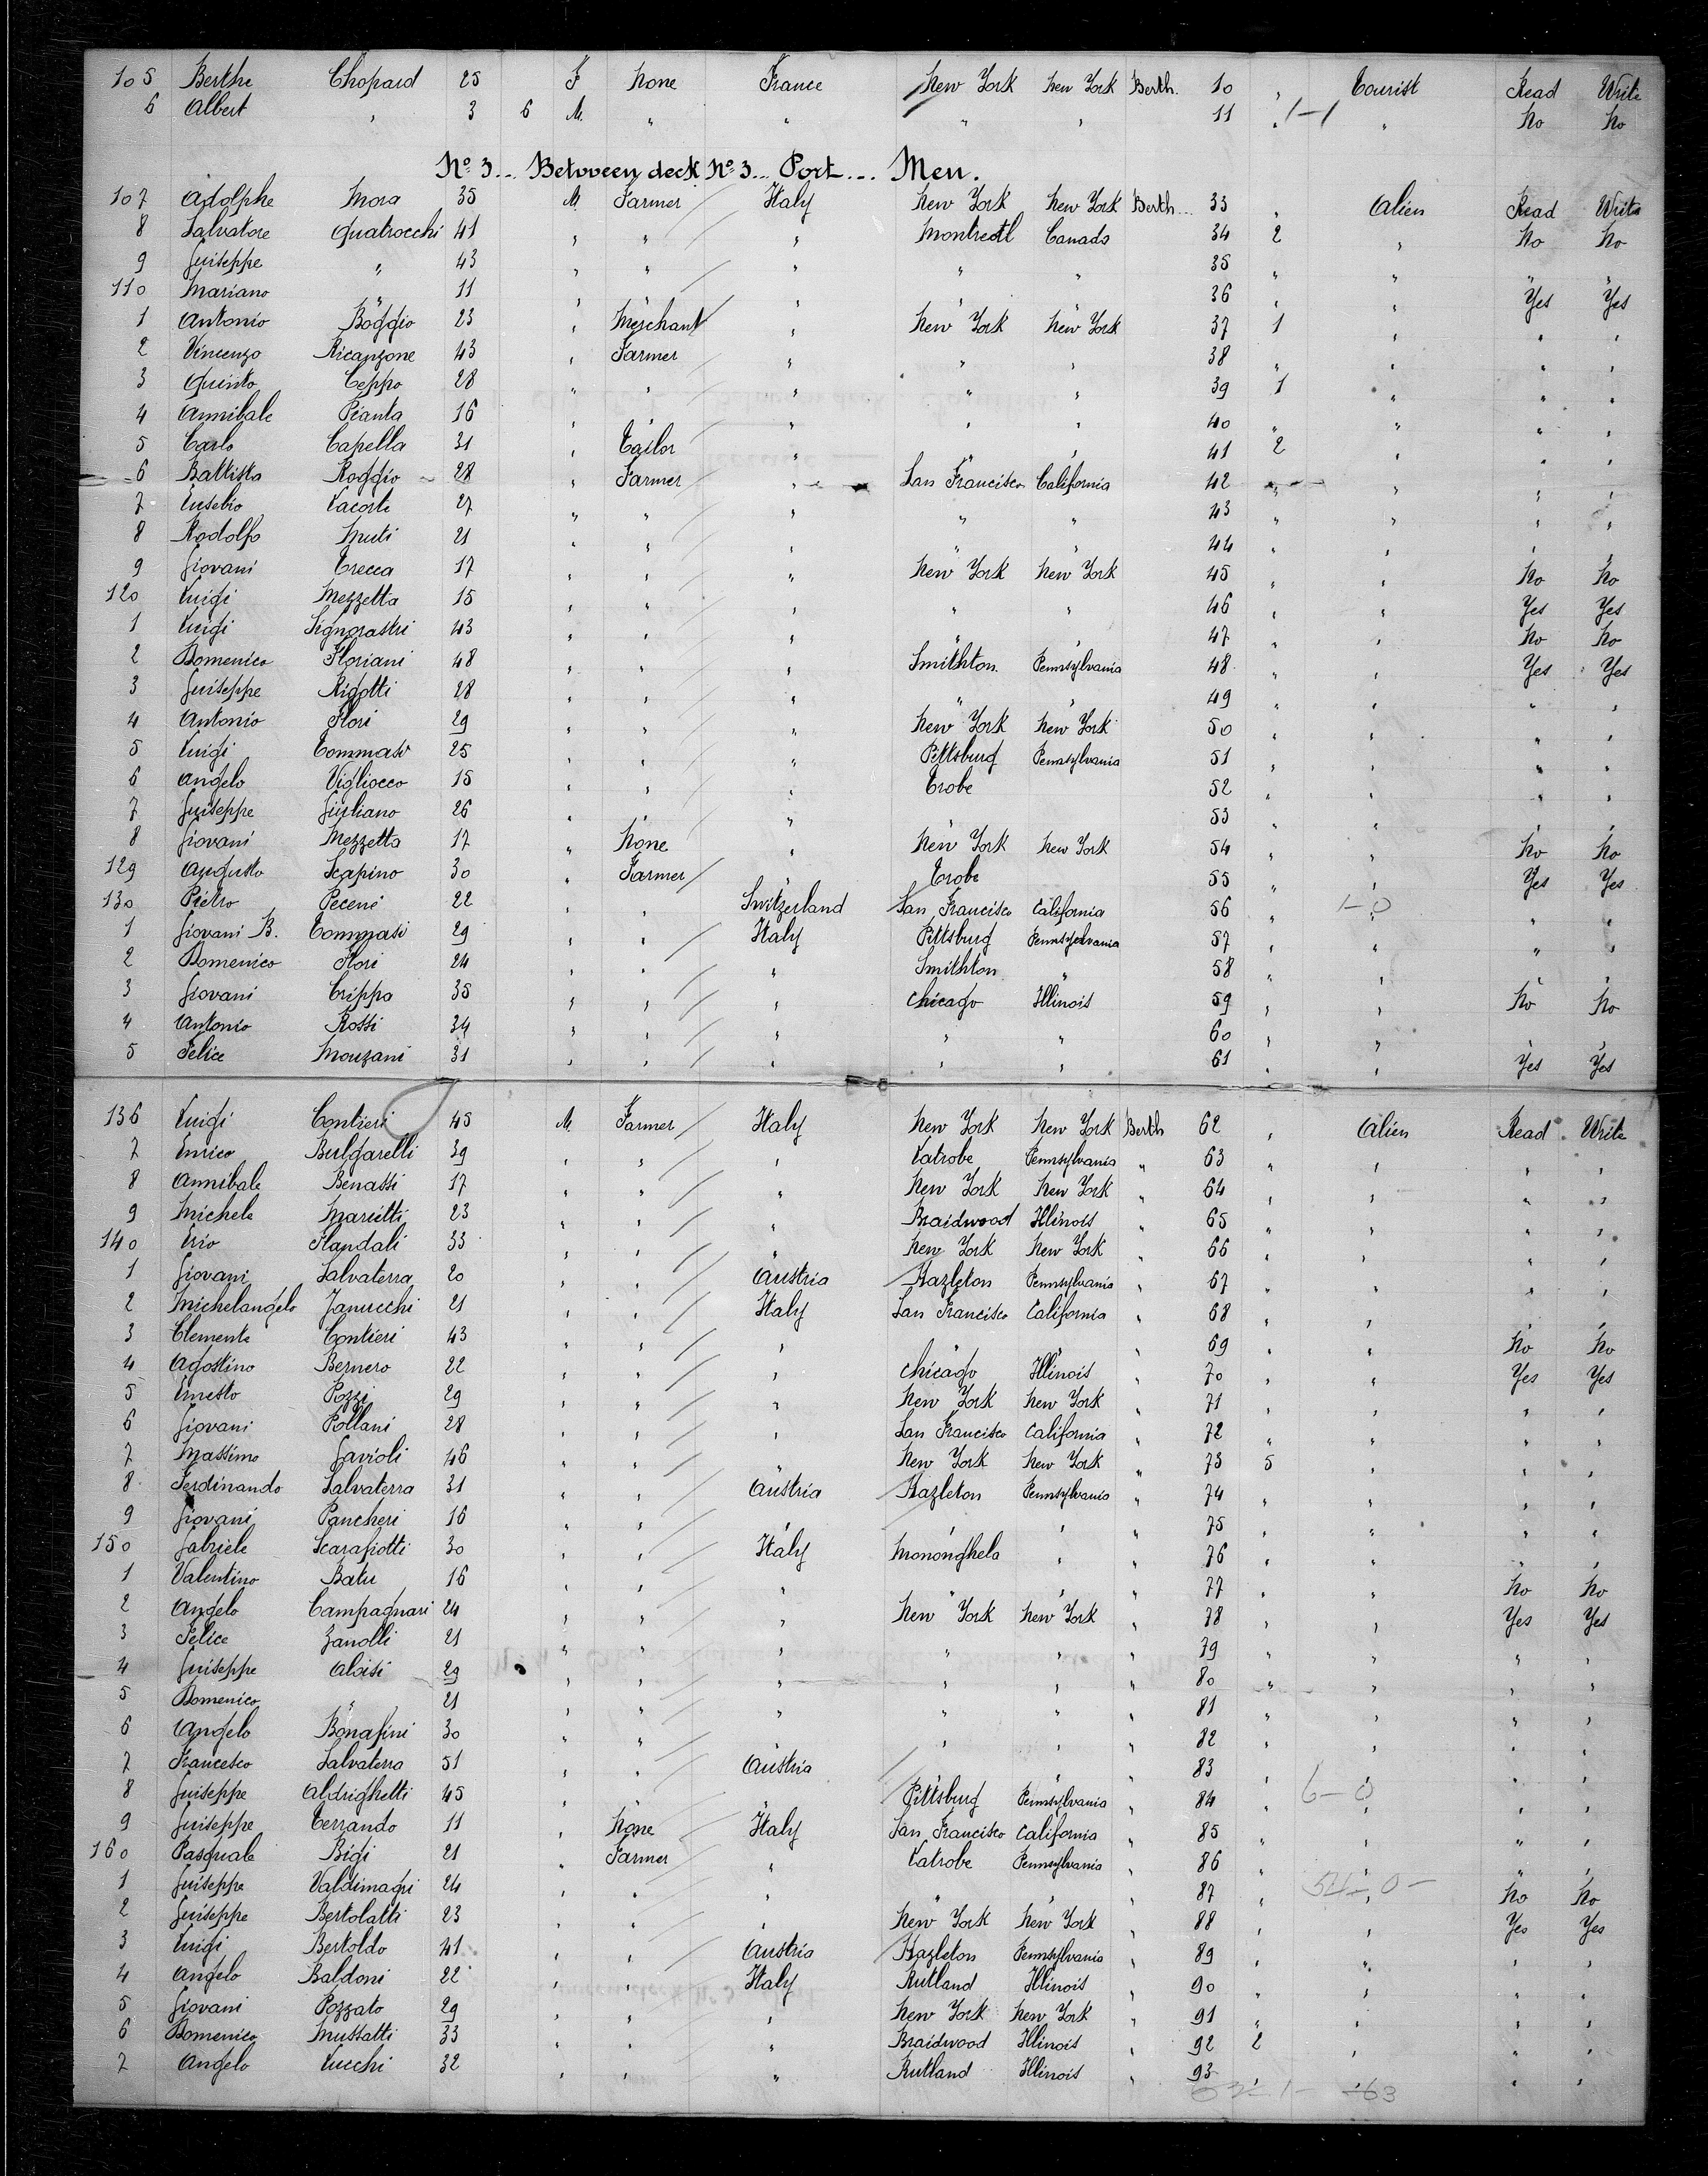 105 Berthe Chopard 25 F None France New York New York Berth. 10 " Tourist Read Write
6 Albert " 3 6 M. " " " " 11 " 1-1 " No No
No. 3... Between deck No. 3... Port... Men.
107 Adolphe Mora 35 M. Farmer Italy New York New York Berth... 33 " Alien Read Write
8 Salvatore Quatrocchi 41 " " " Montreal Canada 34 2 " No No
9 Guiseppe " 43 " " " " " 35 " " " "
110 Mariano " 11 " " " " " 36 " " Yes Yes
1 Antonio Boggio 23 " Merchant " New York New York 37 1 " " "
2 Vincenzo Ricanzone 43 " Farmer " " " 38 " " " "
3 Quinto Ceppo 28 " " " " " 39 1 " " "
4 Annibale Pianta 16 " " " " " 40 " " " "
5 Carlo Capella 31 " Tailor " " " 41 2 " " "
6 Battista Roggio 28 " Farmer " San Francisco California 42 " " " "
7 Eusebio Lacoste 27 " " " " " 43 " " " "
8 Rodolfo Muti 21 " " " " " 44 " " " "
9 Giovani Trecca 17 " " " New York New York 45 " " No No
120 Luigi Mezzetta 15 " " " " " 46 " " Yes Yes
1 Luigi Signorastri 43 " " " " " 47 " " No No
2 Domenico Floriani 48 " " " Smithton Pennsylvania 48 " " Yes Yes
3 Guiseppe Rigotti 28 " " " " " 49 " " " "
4 Antonio Flori 29 " " " New York New York 50 " " " "
5 Luigi Tommasi 25 " " " Pittsburg Pennsylvania 51 " " " "
6 Angelo Vigliocco 15 " " " Trobe 52 " " " "
7 Guiseppe Giuliano 26 " " " " 53 " " " "
8 Giovani Mezzetta 17 " None " New York New York 54 " " No No
129 Augusto Scapino 30 " Farmer " Trobe 55 " " Yes Yes
130 Pietro Peceni 22 " " Switzerland San Francisco California 56 " 1-0 " " "
1 Giovani B. Tommasi 29 " " Italy Pittsburg Pennsylvania 57 " " " "
2 Domenico Flori 24 " " " Smithton " 58 " " " "
3 Giovani Crippa 35 " " " Chicago Illinois 59 " " No No
4 Antonio Rossi 34 " " " " " 60 " " " "
5 Felice Mouzani 31 " " " " " 61 " " Yes Yes
136 Luigi Contieri 45 M. Farmer Italy New York New York Berth 62 " Alien Read Write
7 Enrico Bulgarelli 39 " " " Latrobe Pennsylvania " 63 " " " "
8 Annibale Benassi 17 " " " New York New York " 64 " " " "
9 Michele Marietti 23 " " " Braidwood Illinois " 65 " " " "
140 Flandali 33 " " " New York New York " 66 " " " "
1 Giovani Salvaterra 20 " " Austria Hazleton Pennsylvania " 67 " " " "
2 Michelangelo Janucchi 21 " " Italy San Francisco California " 68 " " " "
3 Clemente Contieri 43 " " " " " " 69 " " No No
4 Agostino Bernero 22 " " " Chicago Illinois " 70 " " Yes Yes
5 Ernesto Pozzi 29 " " " New York New York " 71 " " " "
6 Giovani Pollani 28 " " " San Francisco California " 72 " " " "
7 Massimo Gavioli 46 " " " New York New York " 73 5 " " "
8 Ferdinando Salvaterra 31 " " Austria Hazleton Pennsylvania " 74 " " " "
9 Giovani Pancheri 16 " " " " " " 75 " " " "
150 Gabriele Scarafiotti 30 " " Italy Mononghela " " 76 " " " "
1 Valentino Batu 16 " " " " " " 77 " " No No
2 Angelo Campagnari 24 " " " New York New York " 78 " " Yes Yes
3 Felice Zanolli 21 " " " " " " 79 " " " "
4 Guiseppe Aloisi 29 " " " " " " 80 " " " "
5 Domenico " 21 " " " " " " 81 " " " "
6 Angelo Bonafini 30 " " " " " " 82 " " " "
7 Francesco Salvaterra 51 " " Austria " " " 83 " " " "
8 Guiseppe Aldrighetti 45 " " " Pittsburg Pennsylvania " 84 " 6-0 " " "
9 Guiseppe Terrando 11 " None Italy San Francisco California " 85 " " " "
160 Pasquale Bigi 21 " Farmer " Latrobe Pennsylvania " 86 " " " "
1 Guiseppe Valdimagri 24 " " " " " " 87 " 54-0- " No No
2 Guiseppe Bertolatti 23 " " " New York New York " 88 " " Yes Yes
3 Luigi Bertoldo 41 " " Austria Hazleton Pennsylvania " 89 " " " "
4 Angelo Baldoni 22 " " Italy Rutland Illinois " 90 " " " "
5 Giovani Pozzato 29 " " " New York New York " 91 " " " "
6 Domenico Mussatti 33 " " " Braidwood Illinois " 92 2 " " "
7 Angelo Lucchi 32 " " " Rutland Illinois " 93 " " " "
63